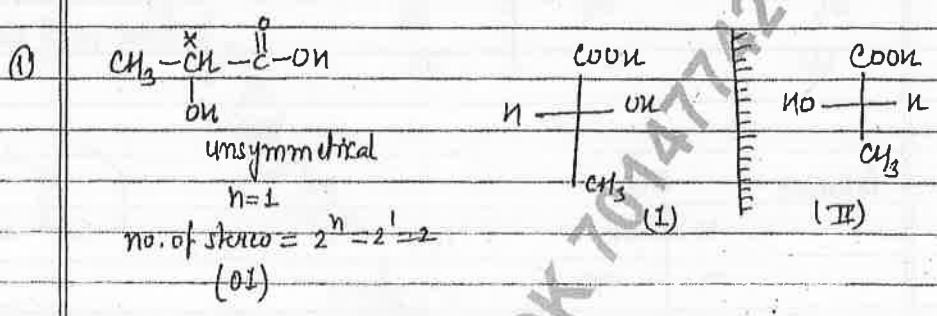 ① CH₃-CH-C-OH
x
O
OH
unsymmetrical
n=1
no. of stereo = 2ⁿ = 2¹ = 2
(OI)
COOH
H OH
CH₃
(I)
COOH
HO H
CH₃
(II)
OK 70147742